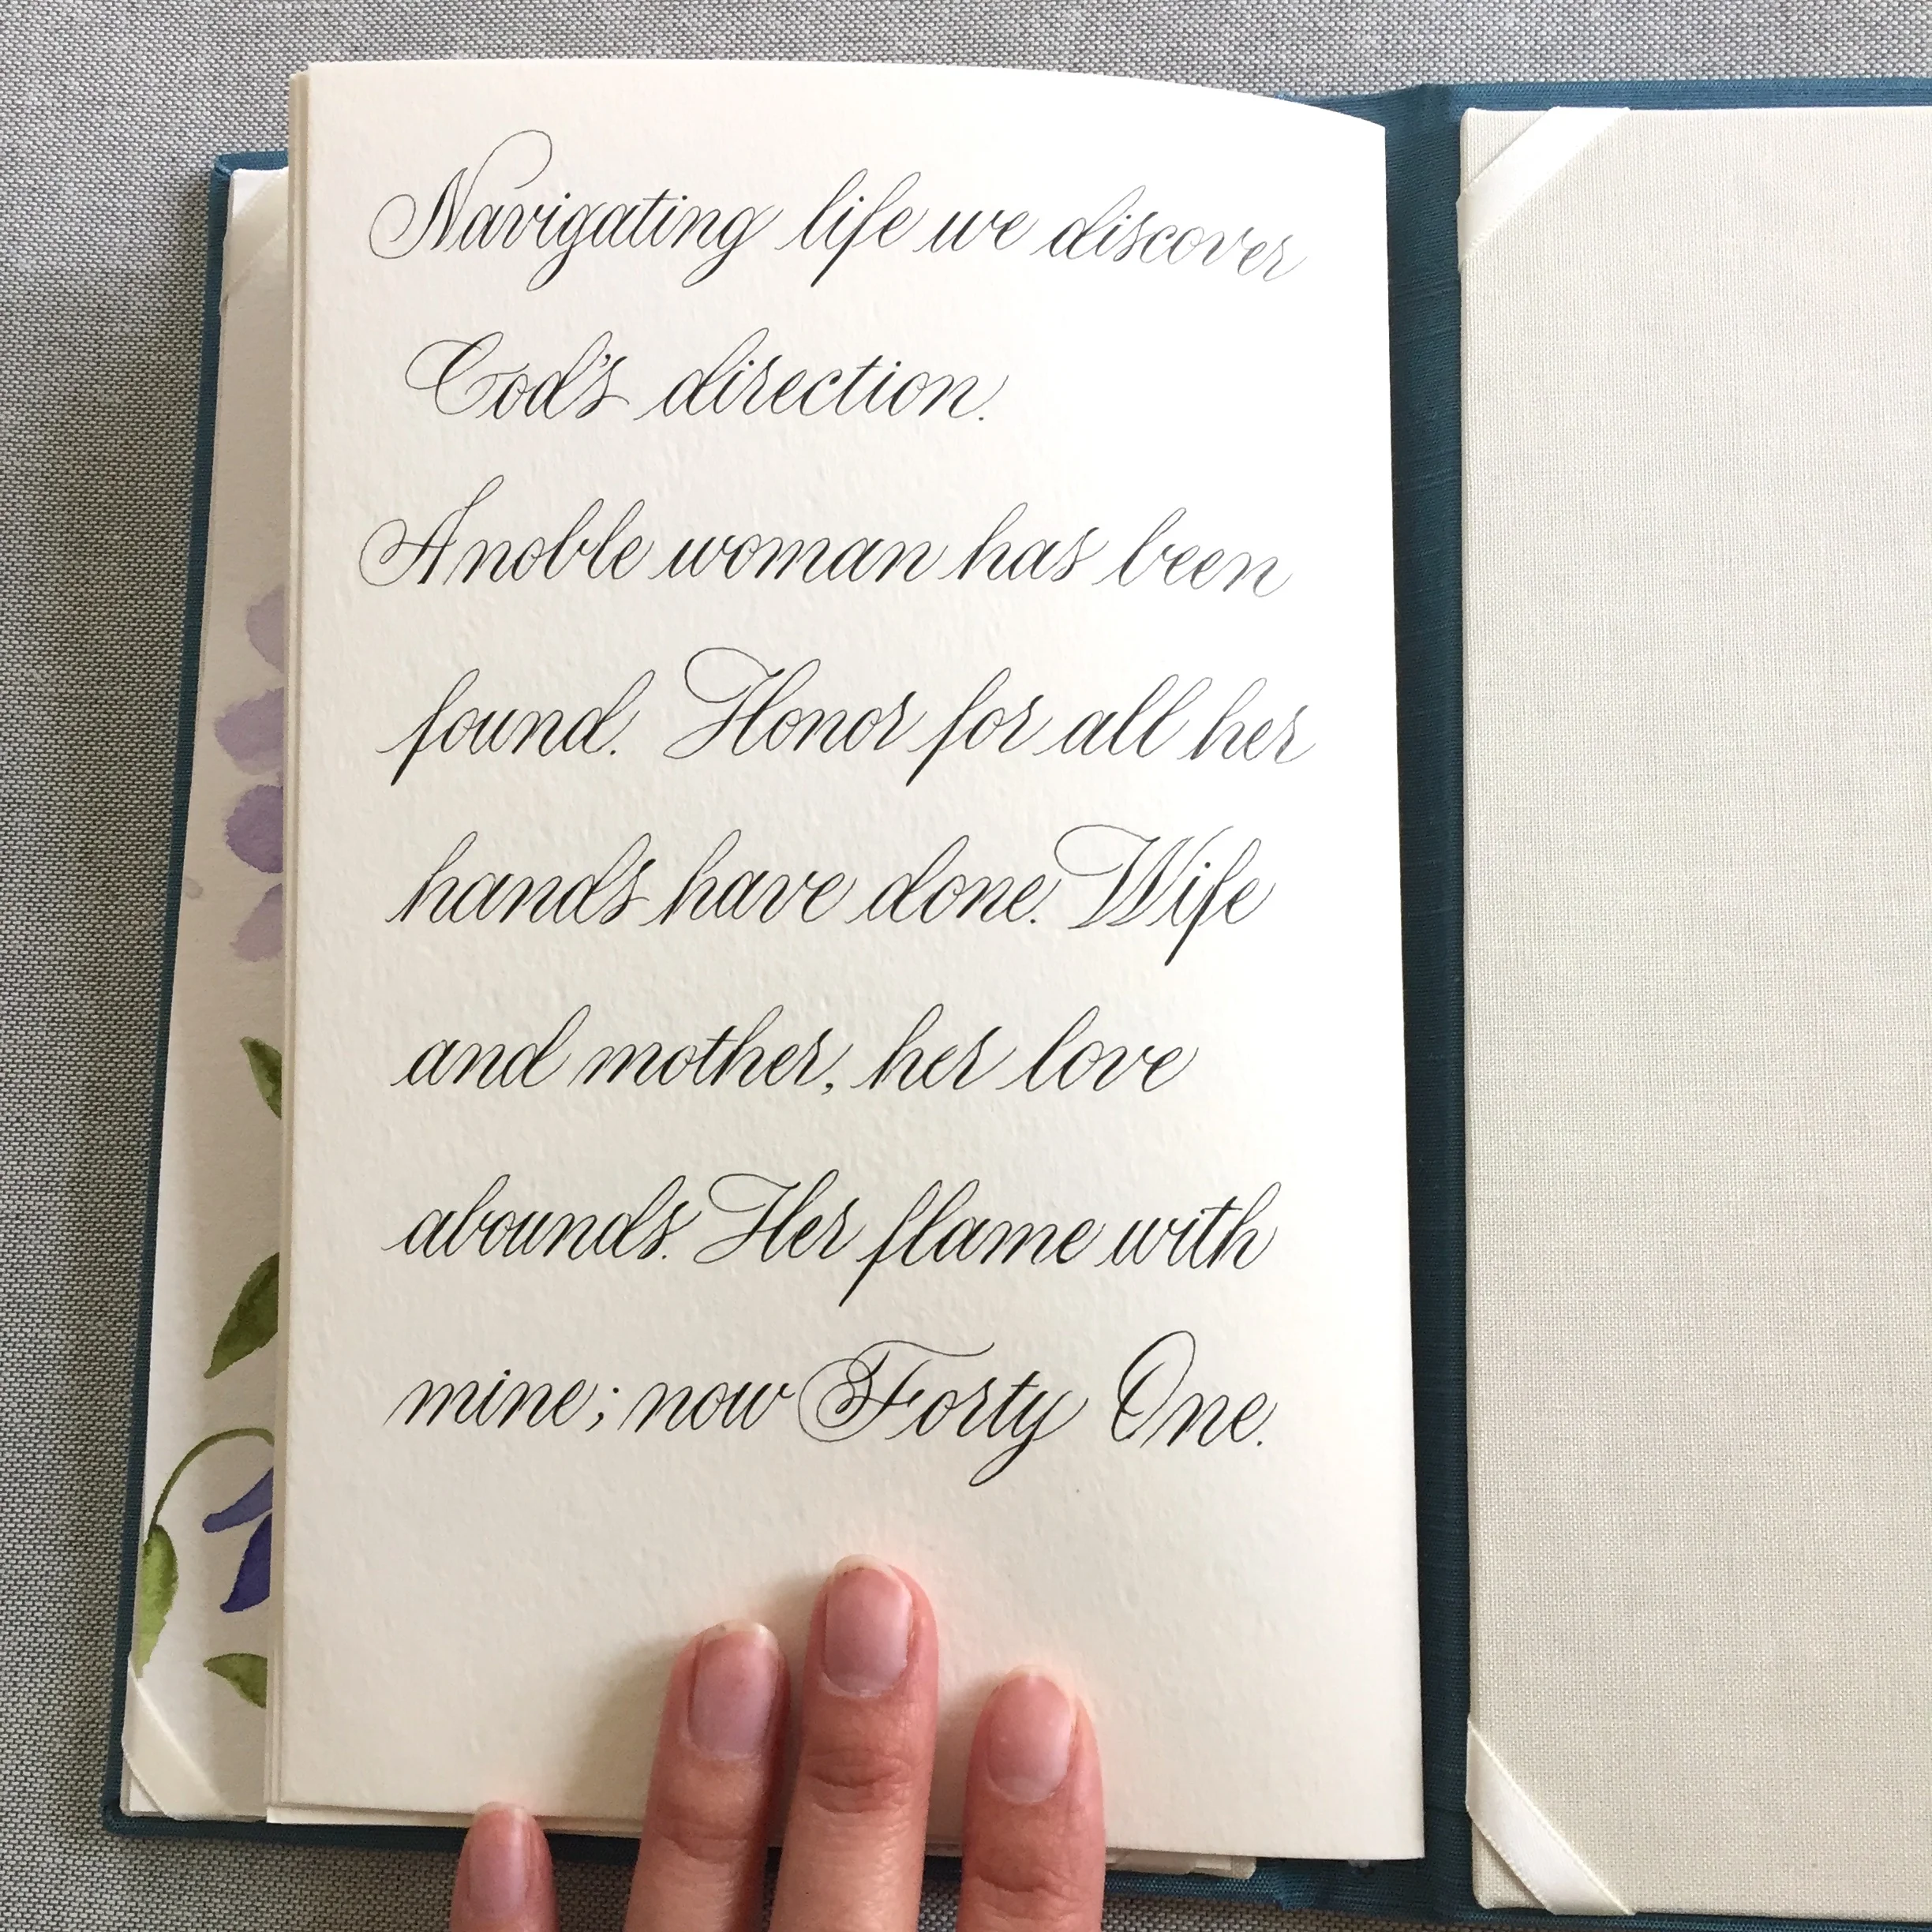 Navigating life we discover
God's direction.
A noble woman has been
found. Honor for all her
hands have done. Wife
and mother, her love
abounds. Her flame with
mine; now Forty One.